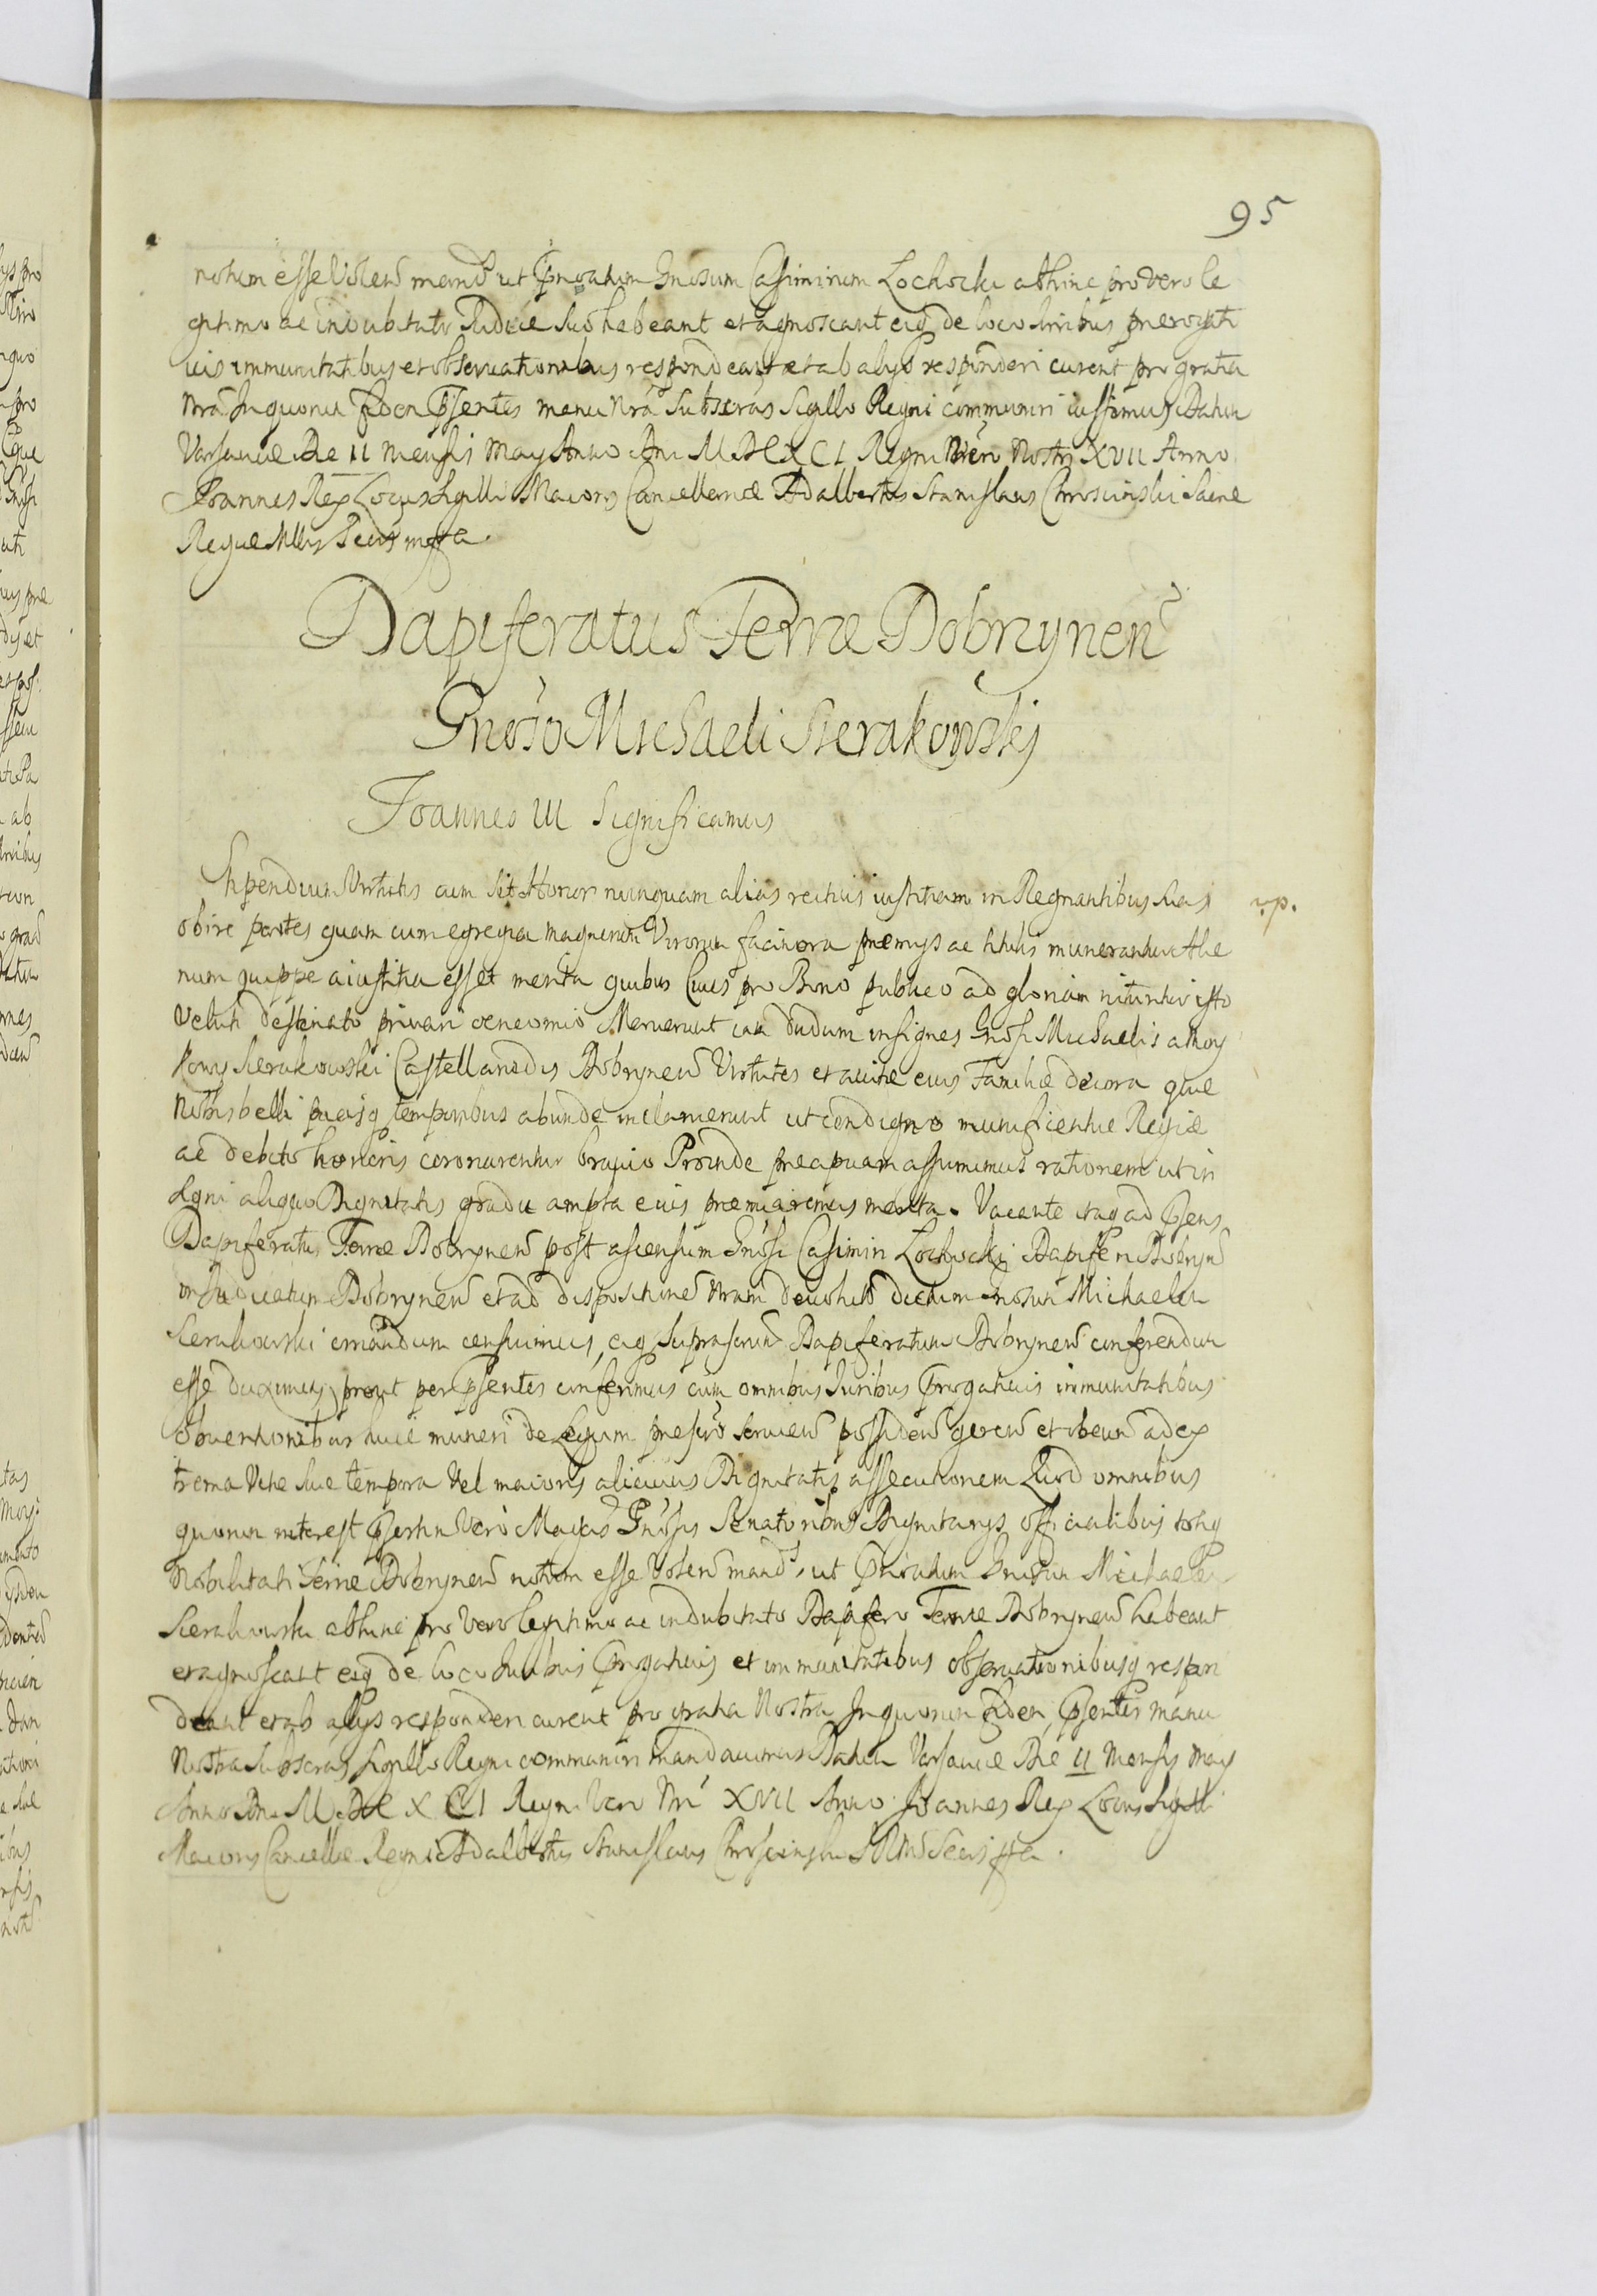 95
notum esse volen͠ mand͠ ut p̃noatum Gnosum Casimirum Lochocki abhinc pro vero le
gitimo ac indubitato Judice suo habeant et agnoscant eiq de loco Juribus prærogati
uis immunitatibus et obseruationibus respondeant et ab alijs responderi curent pro gratia
Nrã In quorum fidem p̃sentes manu Nrã Subscras Sigillo Regni communiri iussimus Datum
Varsauiæ Die II Mensis May Anno Dni M.DC.XCI Regni Vero Nostri XVII Anno
Joannes Rex Locus Sigilli Maioris Cancellariæ Adalbertus Stanislaus Chroscinski Sacræ
Regiæ Mttis Secris mppa.
Dapiferatus Terræ Dobrzynen͠
Gnoso Michaeli Sierakowskij
Joannes III Significamus
Stipendium Virtutis cum sit Honor nunquam alias rectius iustitiam in Regnantibus suas
v.p.
obire partes quam cum egregia magnorum Virorum facinora præmijs ac titulis munerantur Alie
num quippe a iustitia esset merita quibus Ciues pro Bono publico ad gloriam nituntur isto
Veluti destinato priuari encomio Meruerunt iam dudum insignes Gnosi Michaelis a
Sierakowski Castellanidis Dobrynen͠ Virtutes et auitæ eius Familiæ decora quæ
belli pacisq temporibus abunde inclaruerunt ut condigno munificentiæ Regiæ
ac debito honoris coronarentur brauio Proinde præcipuam assumimus rationem ut in
signi aliquo Dignitatis gradu ampla eius præmiaremus merita. Vacante itaq ad p̃sens
Dapiferatu Terræ Dobrynen͠ post ascensum Gnosi Casimiri Lochocki Dapiferi Dobryn͠
in Judicatum Dobrynen͠ et ad dispositione Nram deuoluto dictum Gnosum Michaelem
Sierakowski ornandum censuimus, eiq suprascrum Dapiferatum Dobrynen͠ conferendum
esse duximus prout per p̃sentes conferimus cum omnibus Juribus p̃rogatiuis immunitatibus
obuentionibus huic muneri de Legum præscro seruien͠ possiden͠ geren͠ et obeun͠ ad ex
trema Vitæ suæ tempora Vel maioris alicuius Dignitatis assecutionem Quod omnibus
quorum interest p̃sertim Vero Magcis Gnosis Senatoribus Dignitarijs officialibus totiq
Nobilitati Terræ Dobrynen͠ notum esse Volen͠ mand͠, ut p̃noatum Gnosum Michaelem
Sierakowski abhinc pro Vero legitimo ac indubitato Dapifero Terræ Dobrynen͠ habeant
et agnoscant eiq de loco Juribus p̃rogatiuis et immunitatibus obseruationibusq respon
deant et ab alijs responderi curent pro gratia Nostra In quorum fidem, p̃sentes manu
Nostra Subscras Sigillo Regni communiri mandauimus Datum Varsauiæ Die II Mensis May
Anno Dni M.DC XCI Regni Vero Nri XVII Anno Joannes Rex Locus Sigilli
Maioris Cancellæ Regni Adalbertus Stanislaus Chroscinski SRM Secris mppa.